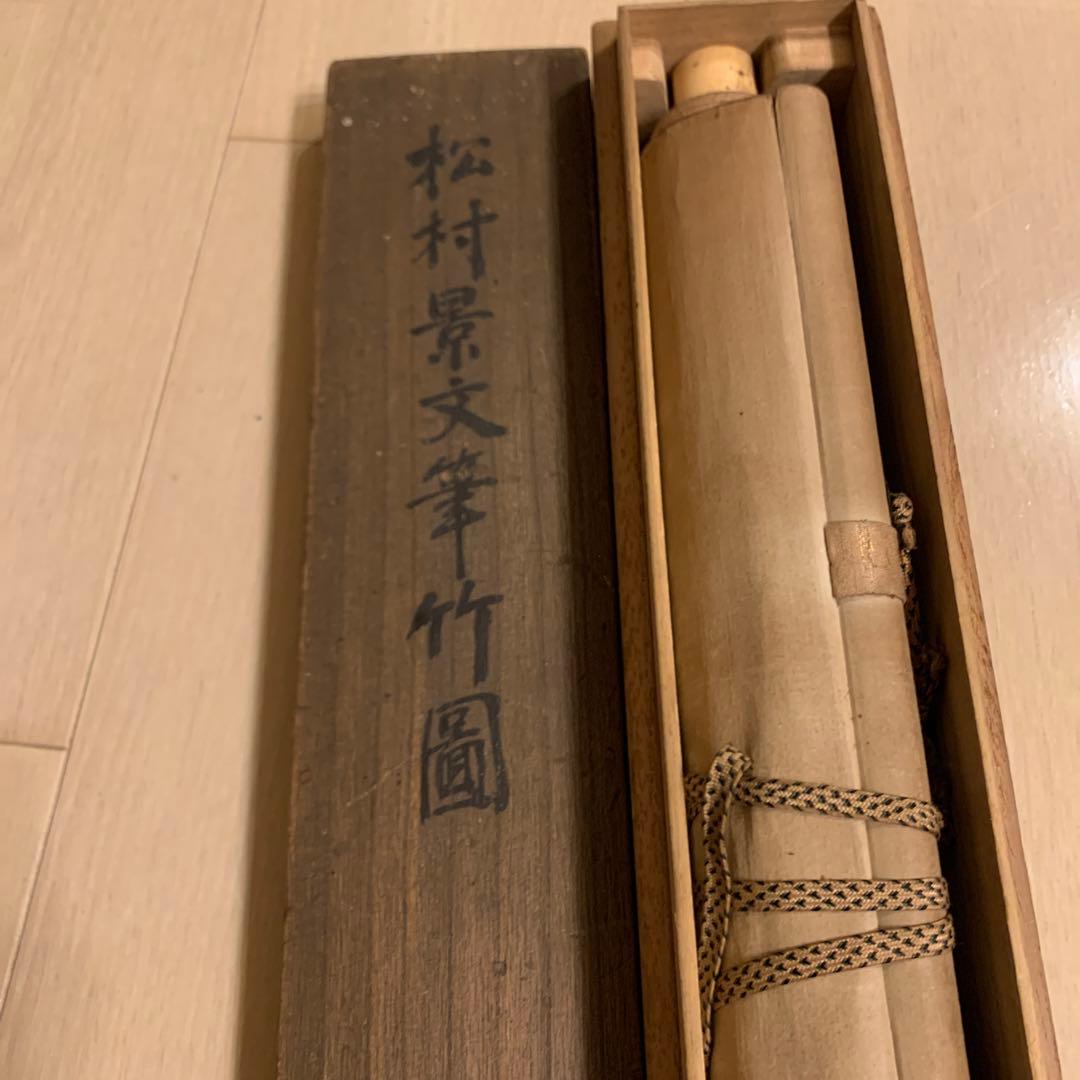 松村景文筆竹圖